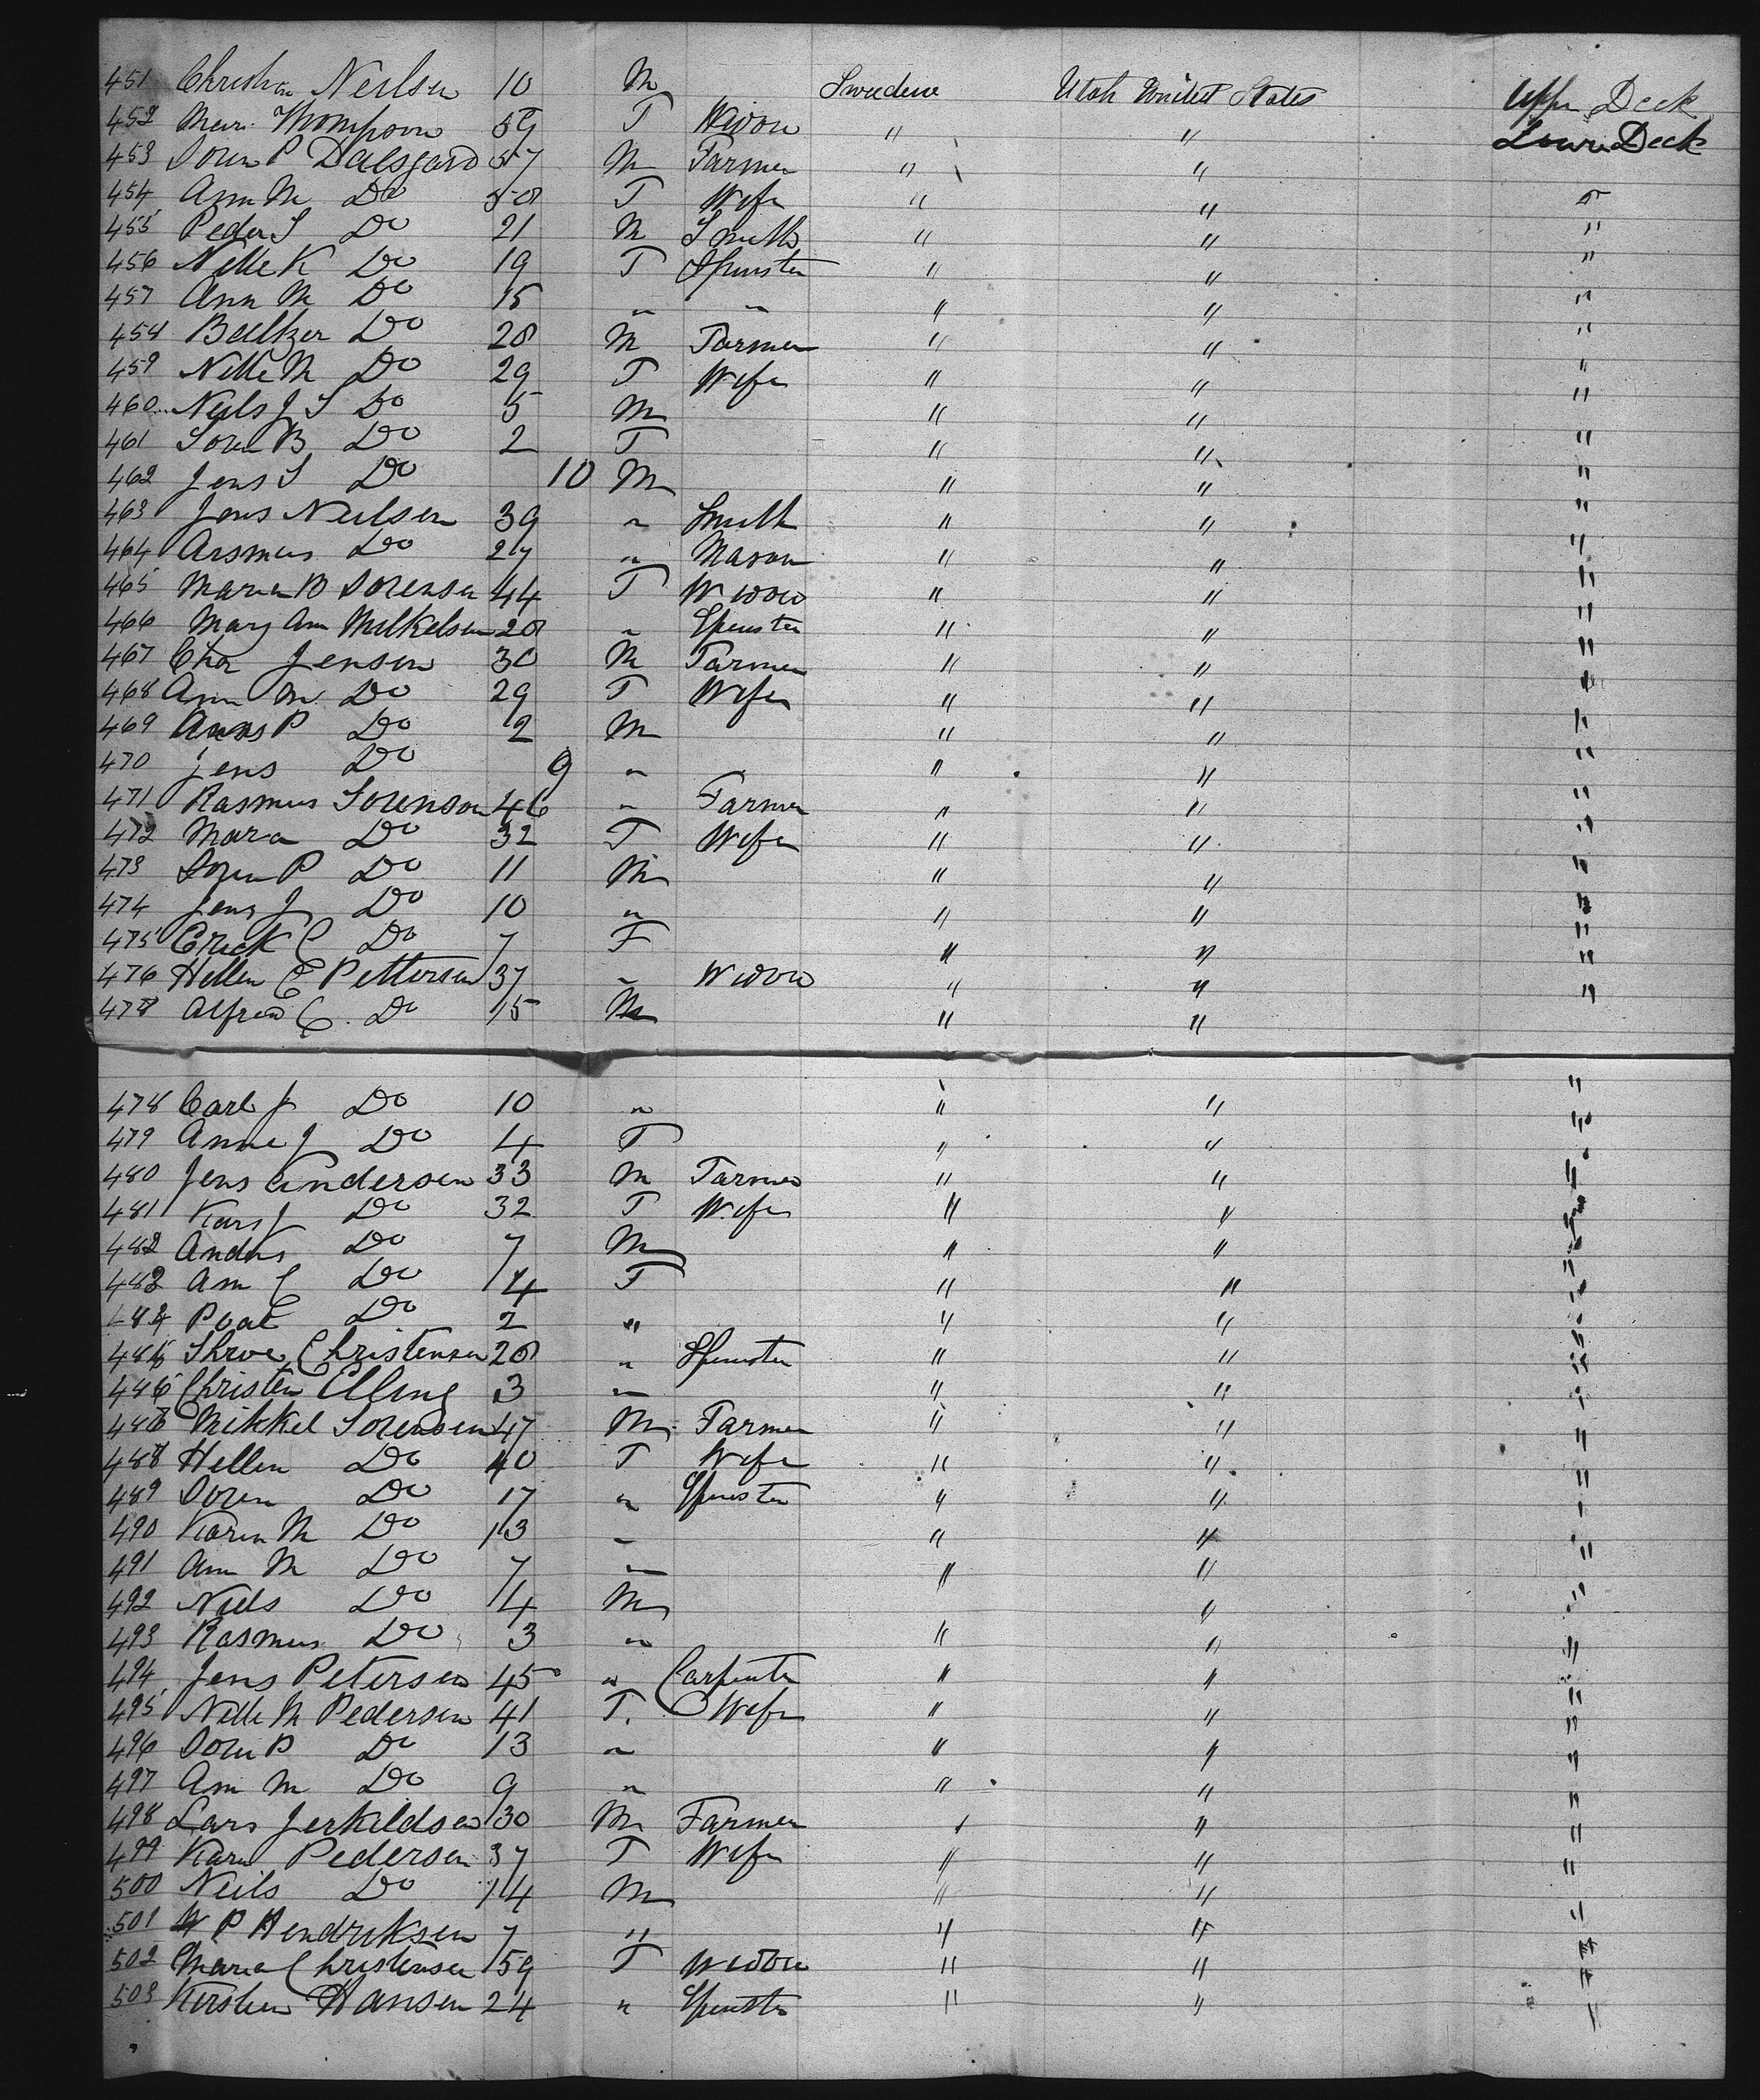 451 Christian Neilsen 10 M Sweden Utah United States Upper Deck
452 Mari Thompson 59 F Widow " " Lower Deck
453 Soren P Dalsgard 57 M Farmer " "
454 Ann M Do 50 F Wife " " "
455 Peder S Do 21 M Smith " " "
456 Nelle K Do 19 F Spinster " " "
457 Ann M Do 15 " " " " "
458 Baltzer Do 28 M Farmer " " "
459 Nelle M Do 29 F Wife " " "
460 Neils J S Do 5 M " " "
461 Soren B Do 2 F " " "
462 Jens S Do 10 M " " "
463 Jens Neilsen 39 " Smith " " "
464 Arsmus Do 27 " Mason " " "
465 Maren B Sorensen 44 F Widow " " "
466 Mary Ann Mikkelsen 28 " Spinster " " "
467 Chr Jensen 30 M Farmer " " "
468 Ann M. Do 29 F Wife " " "
469 P Do 2 M " " "
470 Jens Do 9 " " " "
471 Rasmus Sorenson 46 " Farmer " " "
472 Mara Do 32 F Wife " " "
473 Soren P Do 11 M " " "
474 Jens J Do 10 " " " "
475 Erick C Do 7 F " " "
476 Hellen E Pettersen 37 " Widow " " "
478 Alfred C. Do 15 M " " "
478 Carl J Do 10 " " " "
479 Anne J Do 4 F " " "
480 Jens Andersen 33 M Farmer " " "
481 Kars J Do 32 F Wife " " "
482 Andrs Do 7 M " " "
483 Ann C Do 4 F " " "
484 Do 2 " " " "
485 Christensen 28 " Spinster " " "
486 Christen Elling 3 " " " "
486 Mikkel Sorensen 47 M Farmer " " "
488 Hellen Do 40 F Wife " " "
489 Soren Do 17 " Spinster " " "
490 Karen M Do 13 " " " "
491 Ann M Do 7 " " " "
492 Niels Do 4 M " "
493 Rasmus Do 3 " " " "
494 Jens Petersen 45 " Carpenter " " "
495 Nelle M Pedersen 41 F. Wife " " "
496 Soren P Do 13 " " " "
497 Ann M Do 9 " " " "
498 Lars Jerkildsen 30 M Farmer " " "
499 Karen Pedersen 37 F Wife " " "
500 Neils Do 14 M " " "
501 P Hendriksen 7 " " " "
502 Maria Christensen 59 F Widow " " "
503 Kirsten Hansen 24 " Spinster " " "